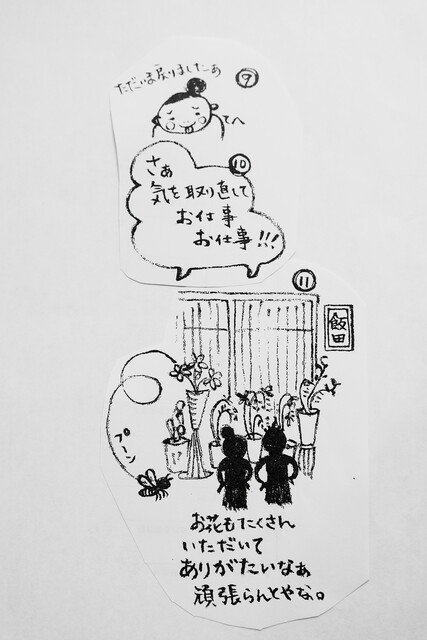 ただいま戻りましたーぁ
⑨
てへ
⑩
さぁ
気を取り直して
お仕事
お仕事!!!
⑪
飯田
プーン
お花もたくさん
いただいて
ありがたいなぁ
頑張らんとやな。